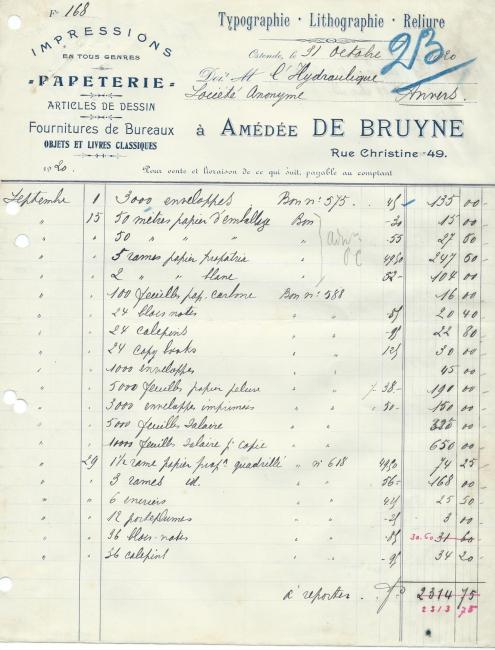 F° 168
Typographie · Lithographie · Reliure
IMPRESSIONS
EN TOUS GENRES
PAPETERIE
ARTICLES DE DESSIN
Fournitures de Bureaux
OBJETS ET LIVRES CLASSIQUES
Ostende, le 31 Octobre 1920
23
Doit M l'Hydraulique
Société Anonyme Anvers.
à AMÉDÉE DE BRUYNE
Rue Christine 49.
1920. Pour vente et livraison de ce qui suit, payable au comptant
Septembre 1 3000 enveloppes Bon n° 575. 45 135 00
" 15 50 mètres papier d'emballage Bon 30 15 00
" " 50 " " " 55 27 50
" " 5 rames papier 49.50 247 50
" " 2 " " blanc 52 104 00
" " 100 feuilles pap. carbone Bon n° 588 16 00
" " 24 blocs notes " " 85 20 40
" " 24 calepins " " 95 22 80
" " 24 copy books " " 125 30 00
" " 1000 enveloppes " " 45 00
" " 5000 feuilles papier pelure " " 38 190 00
" " 3000 enveloppes imprimées " " 50 150 00
" " 5000 feuilles Salaire " " 325 00
" " 1000 feuilles Salaire p. copie " " 650 00
" 29 1½ rame papier quadrillé " n° 618 49.50 74 25
" " 3 rames id. " " 56 168 00
" " 6 encriers " " 425 25 50
" " 12 porteplumes " " 25 3 00
" " 36 blocs-notes " " 85 30.60 31 60
" " 36 calepins " " 95 34 20
à reporter. f° 2314 75
2313 75